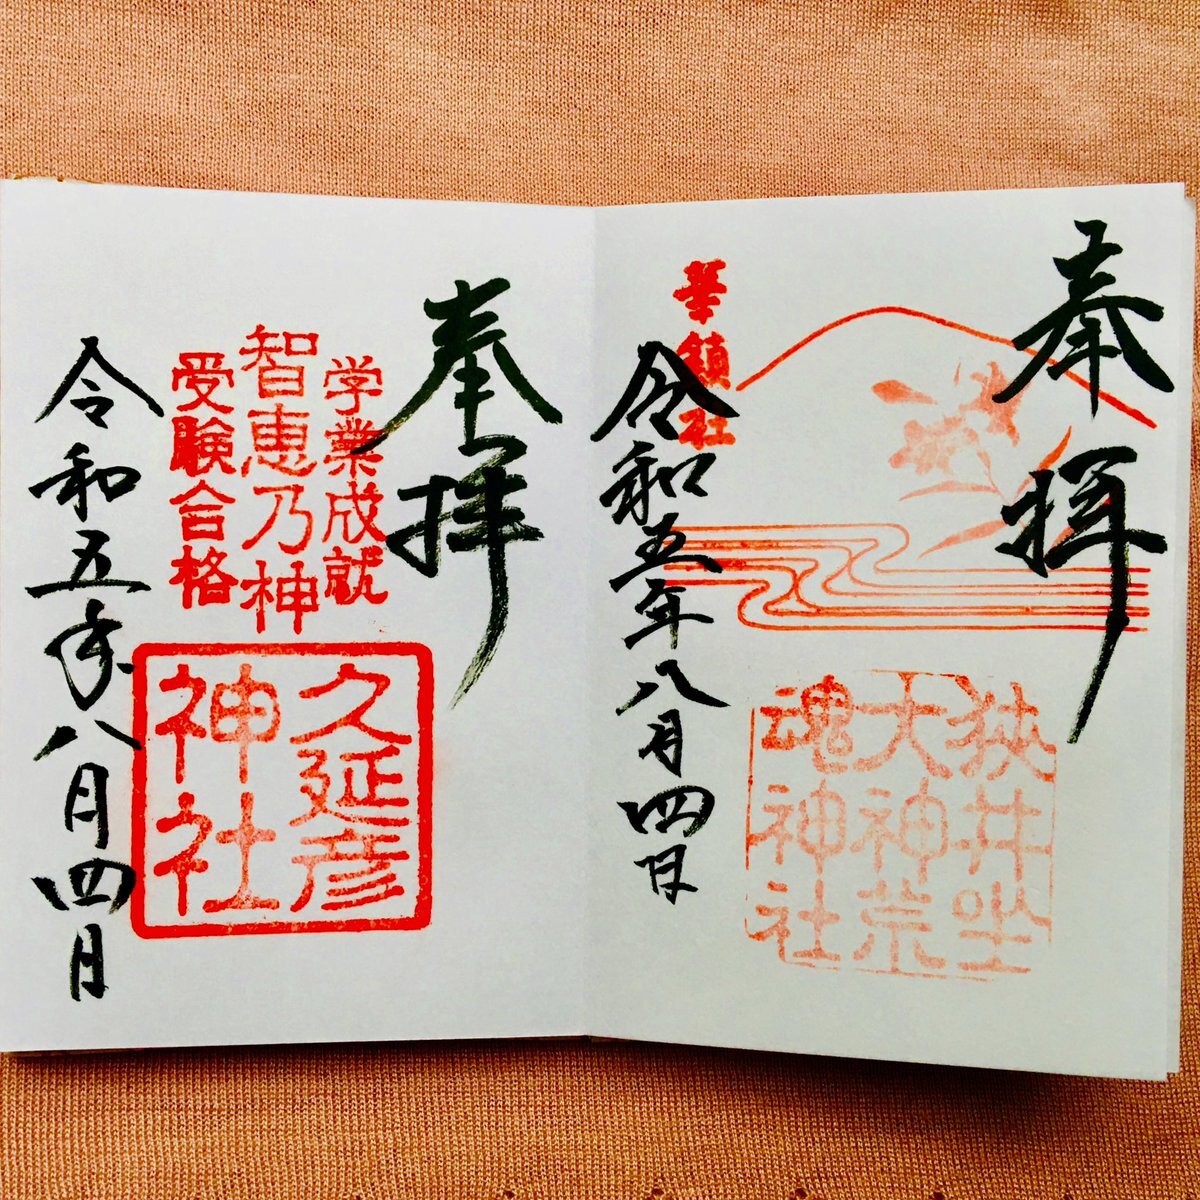 奉拝
華鎮社
令和五年八月四日
狭井坐
大神荒
魂神社
奉拝
学業成就
智恵乃神
受験合格
久延彦
神社
令和五年八月四日